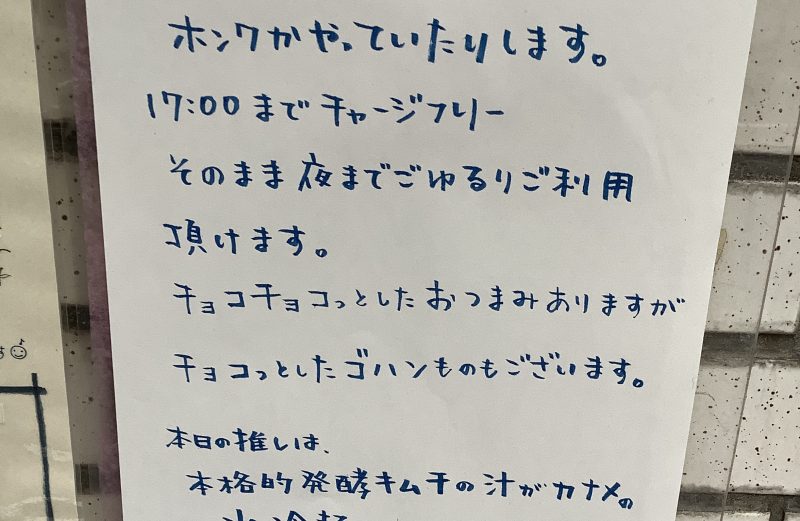 ホンワかやっていたりします。
17:00までチャージフリー
そのまま夜までごゆるりご利用
頂けます。
チョコチョコっとしたおつまみありますが
チョコっとしたゴハンものもございます。
本日の推しは、
本格的発酵キムチの汁がカナメの